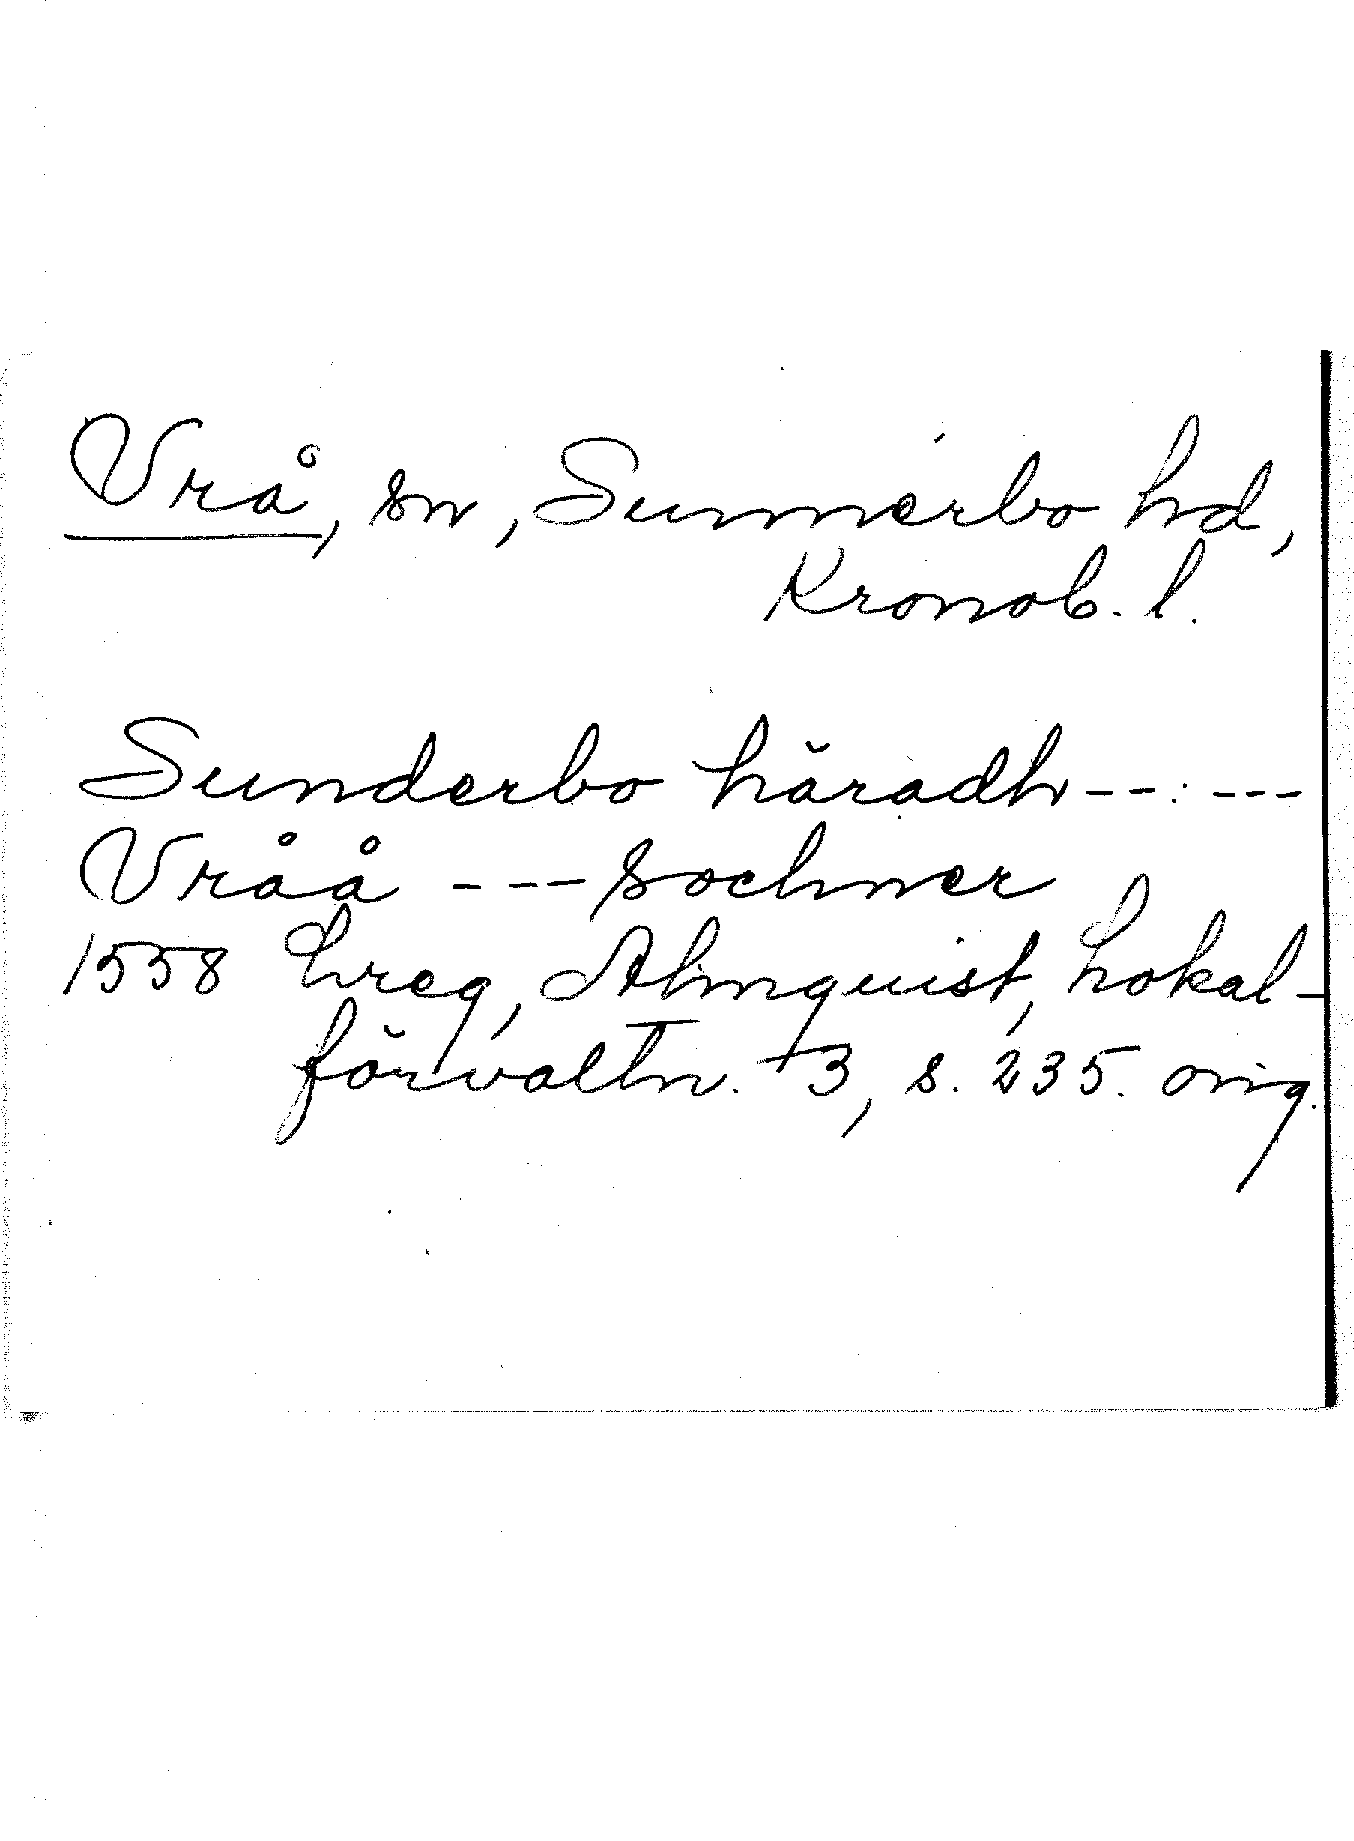 Vrå, sn, Sunnerbo hd,
Kronob. l.
Sunderbo häradh --- ---
Vråå --- sochner
1558 Lreg, Almquist, Lokal-
förvaltn. 3, s. 235. orig.